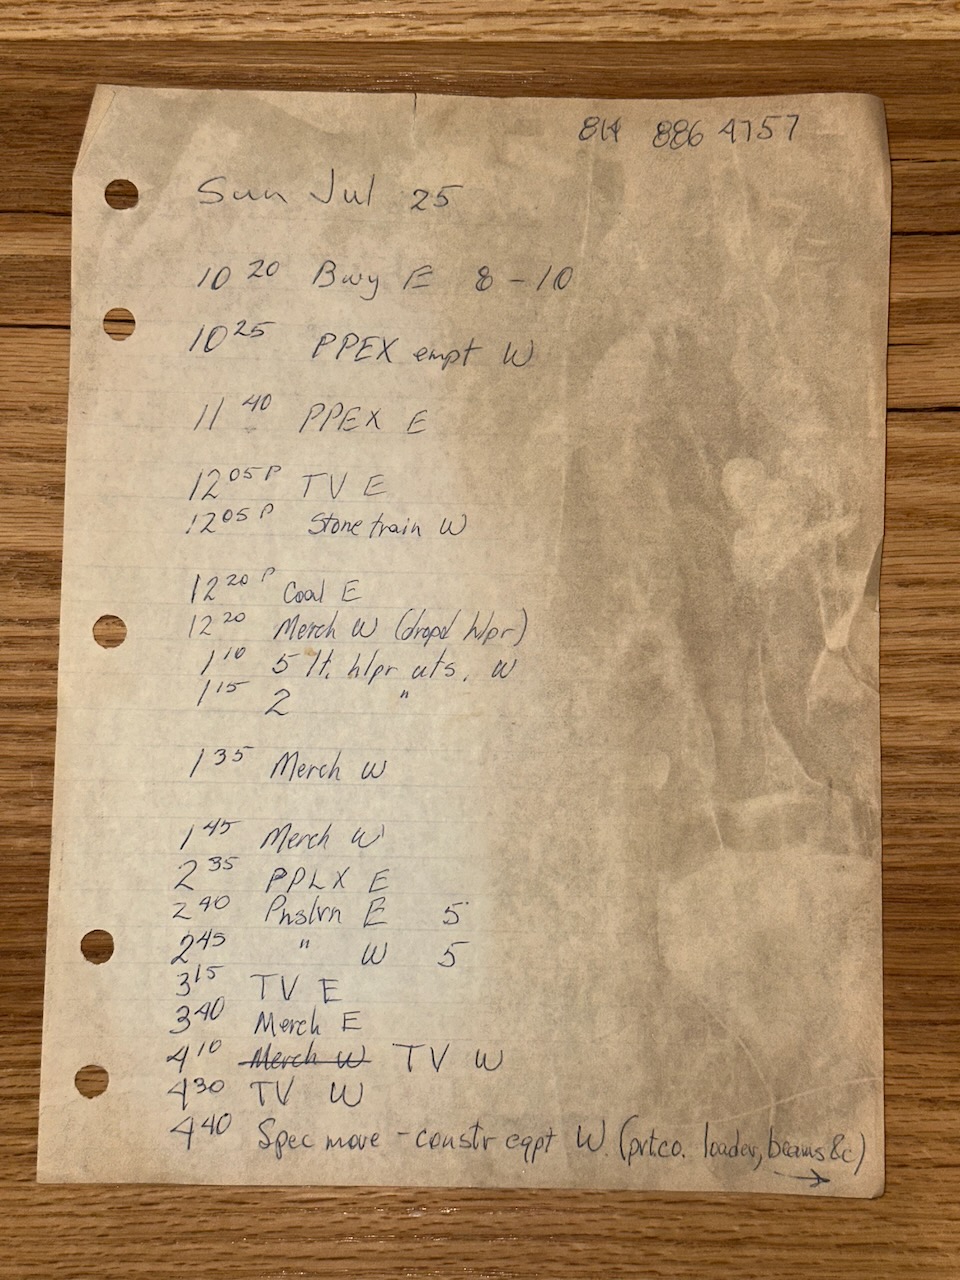 814 886 4757
Sun Jul 25
10 20 Bwy E 8-10
10 25 PPEX empt W
11 40 PPEX E
12 05 P TV E
12 05 P Stone train W
12 20 P Coal E
12 20 Merch W (dropd hlpr)
1 10 5 lt. hlpr uts. W
1 15 2 "
1 35 Merch W
1 45 Merch W
2 35 PPLX E
2 40 Pnslvn E 5
2 45 " W 5
3 15 TV E
3 40 Merch E
4 10 Merch W TV W
4 30 TV W
4 40 Spec move - constr eqpt W. (prt.co. loader, beams &c)
→